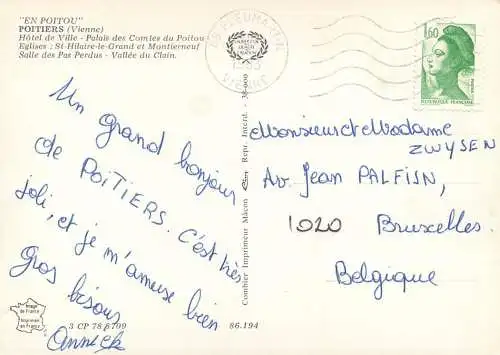 "EN POITOU"
POITIERS (Vienne)
Hôtel de Ville - Palais des Comtes du Poitou
Eglises : St-Hilaire-le-Grand et Montierneuf
Salle des Pas Perdus - Vallée du Clain.
Un grand bonjour
de POITIERS. C'est très
joli, et je m'amuse bien
Gros bisous
Annick
Image de France
Imprimée en France
3 CP 78 8709
86.194
Combier Imprimeur Mâcon
Repr. Interd. - 38-000
VIENNE
1,60
REPUBLIQUE FRANÇAISE
Monsieur et Madame
ZWYSEN
Av. Jean PALFIJN,
1020 Bruxelles.
Belgique